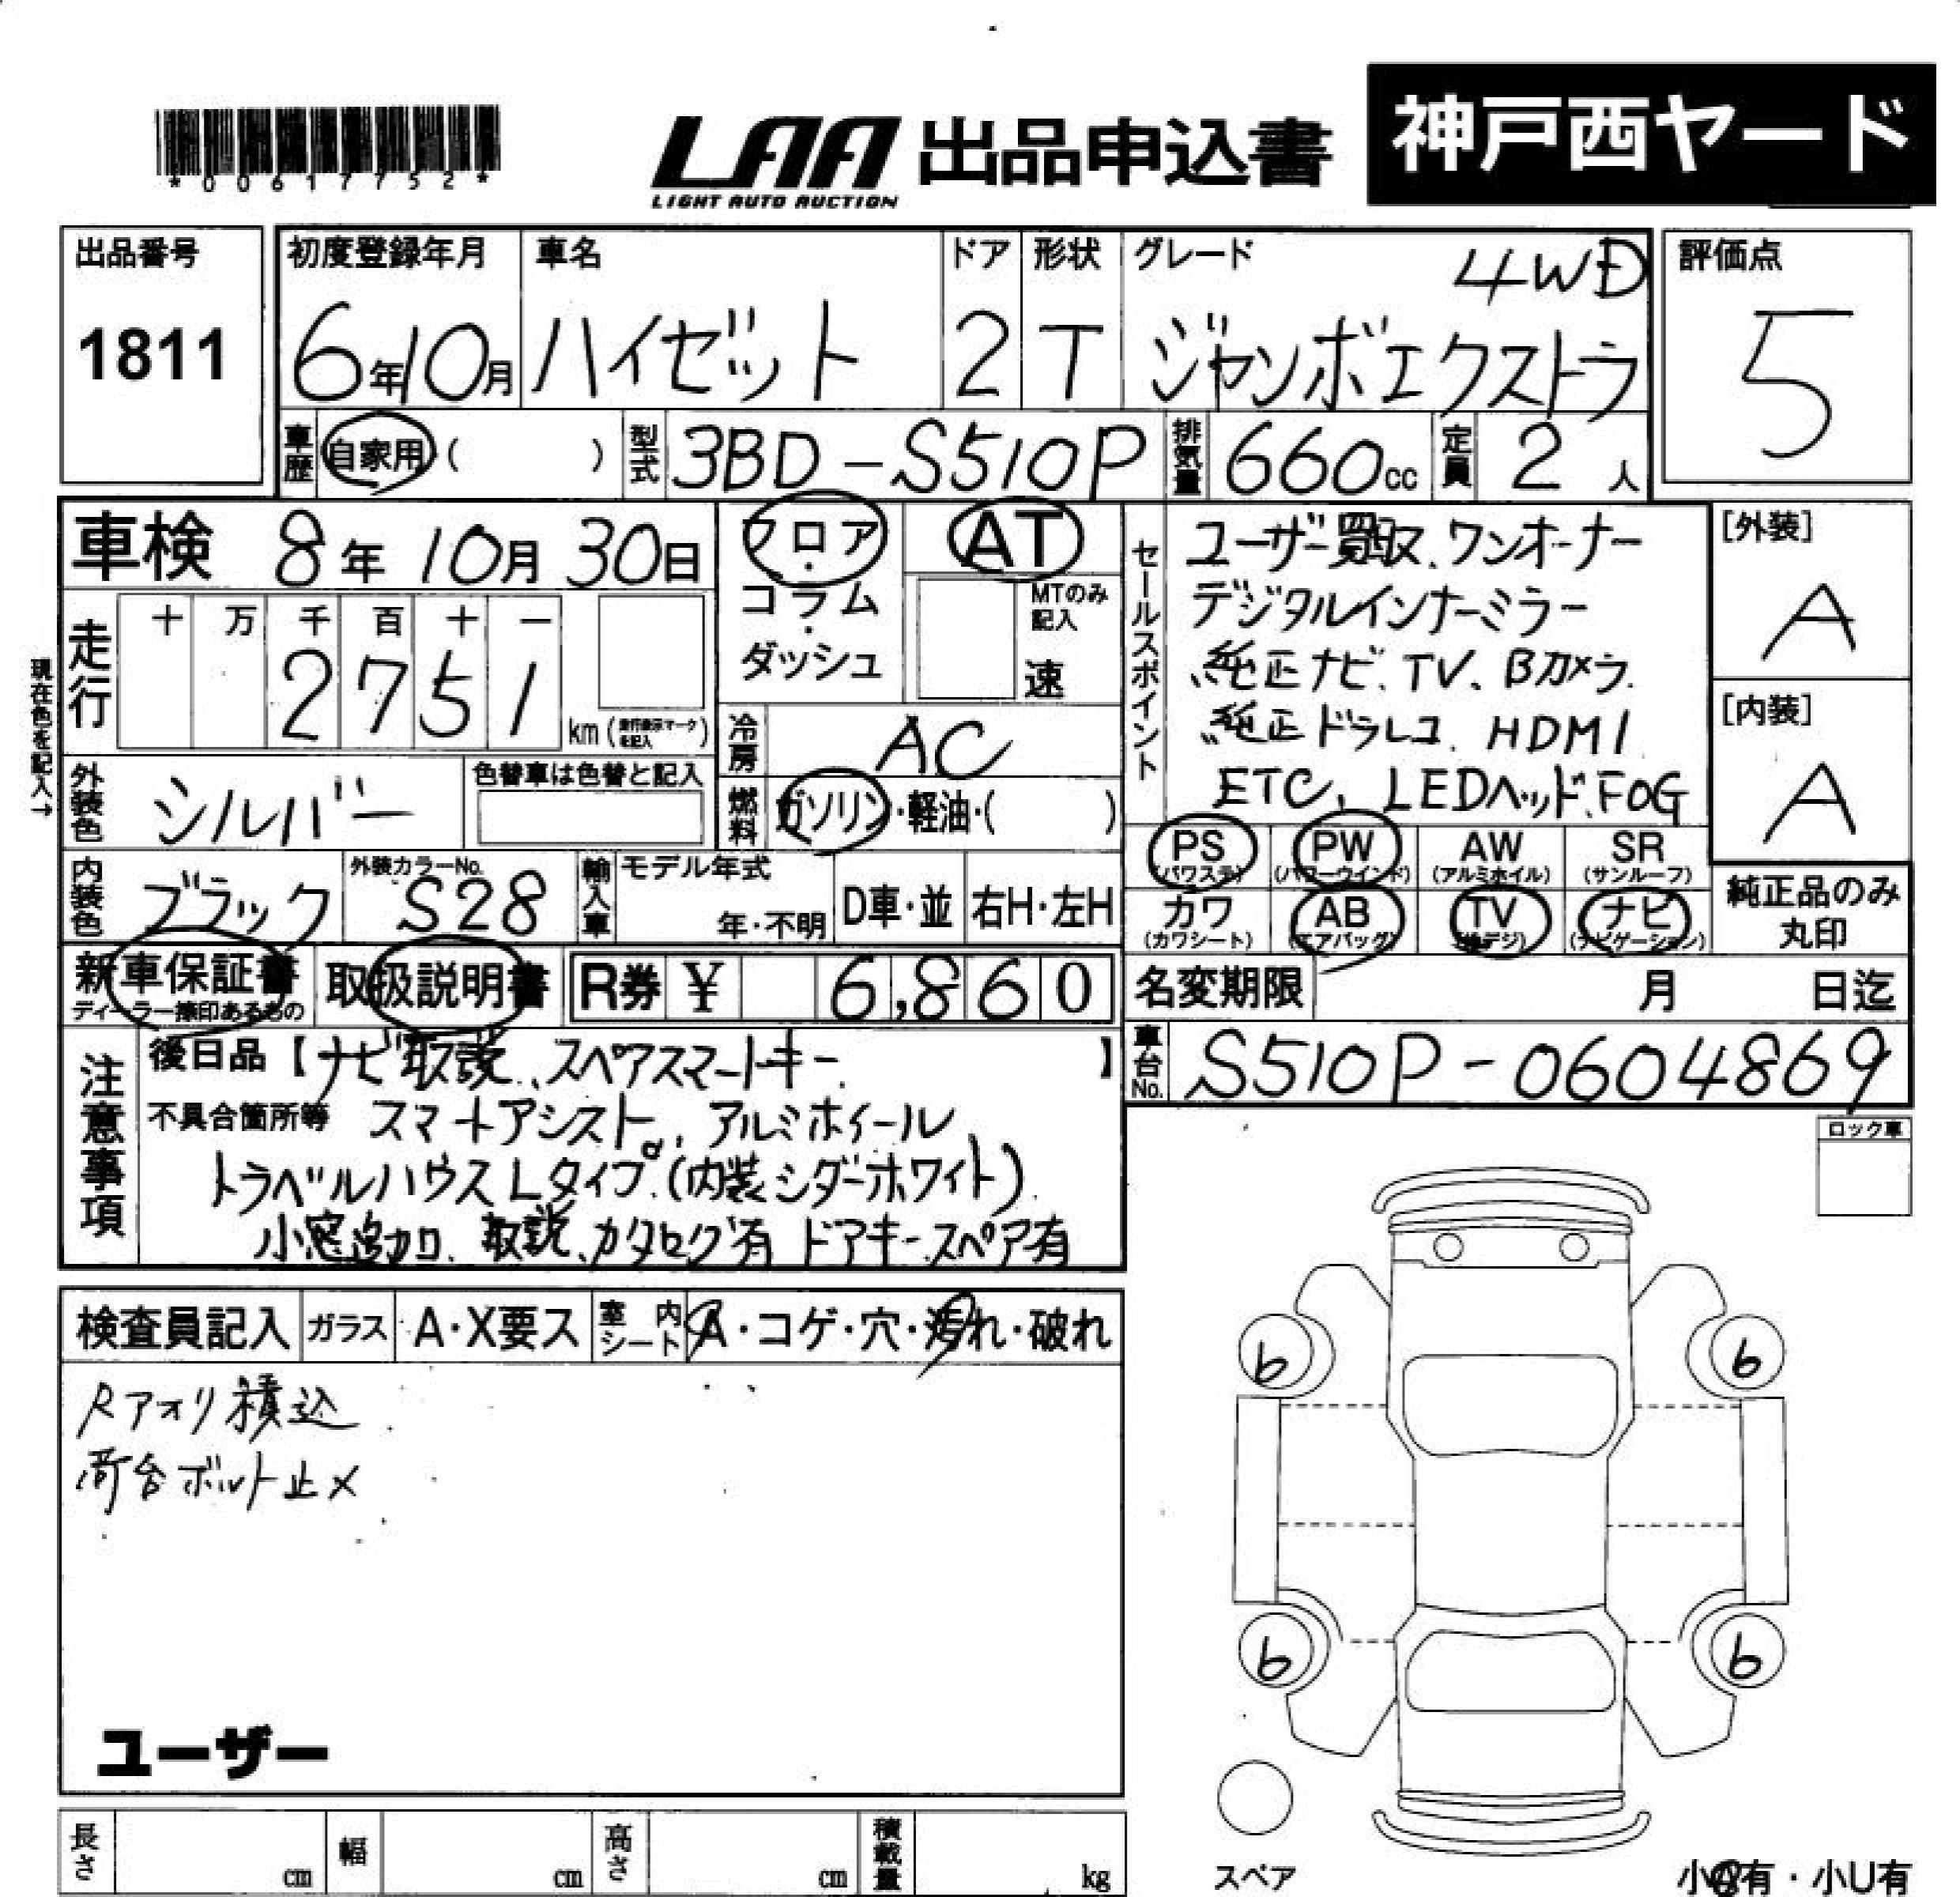 *00617752*
LAA 出品申込書 神戸西ヤード
LIGHT AUTO AUCTION
出品番号 1811
初度登録年月 6年10月
車名 ハイゼット
ドア 2
形状 T
グレード 4WD ジャンボエクストラ
評価点 5
車歴 自家用 ( )
型式 3BD-S510P
排気量 660cc
定員 2人
車検 8年10月30日
フロア・コラム・ダッシュ
AT
MTのみ記入
速
セールスポイント
ユーザー買取、ワンオーナー
デジタルインナーミラー
純正ナビ、TV、Bカメラ
純正ドラレコ、HDMI
ETC、LEDヘッド、FOG
[外装] A
[内装] A
現在色を記入→
走行 十 万 千 百 十 一
2751 km
冷房 AC
燃料 ガソリン・軽油・( )
外装色 シルバー
色替車は色替と記入
内装色 ブラック
外装カラーNo. S28
輸入車 モデル年式 年・不明 D車・並 右H・左H
PS (パワステ) PW (パワーウインド) AW (アルミホイル) SR (サンルーフ)
カワ (カワシート) AB (エアバッグ) TV (地デジ) ナビ (ナビゲーション)
純正品のみ丸印
新車保証書
ディーラー捺印あるもの
取扱説明書
R券 ¥ 6,860
名変期限 月 日迄
車台No. S510P-0604869
注意事項
後日品【ナビ取説、スペアスマートキー 】
不具合箇所等 スマートアシスト、アルミホイール
トラベルハウスLタイプ(内装シダーホワイト)
小窓追加、取説、カタログ有 ドアキースペア有
ロック車
検査員記入 ガラス A・X要ス 室内シート A・コゲ・穴・汚れ・破れ
Rアオリ積込
荷台ボルト止メ
ユーザー
6 6
6 6
スペア
長さ cm 幅 cm 高さ cm 積載量 kg
有・小U有